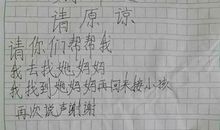 请原谅
请你们帮帮我
我去找她妈妈
我找到她妈妈再回来接小孩
再次说声谢谢